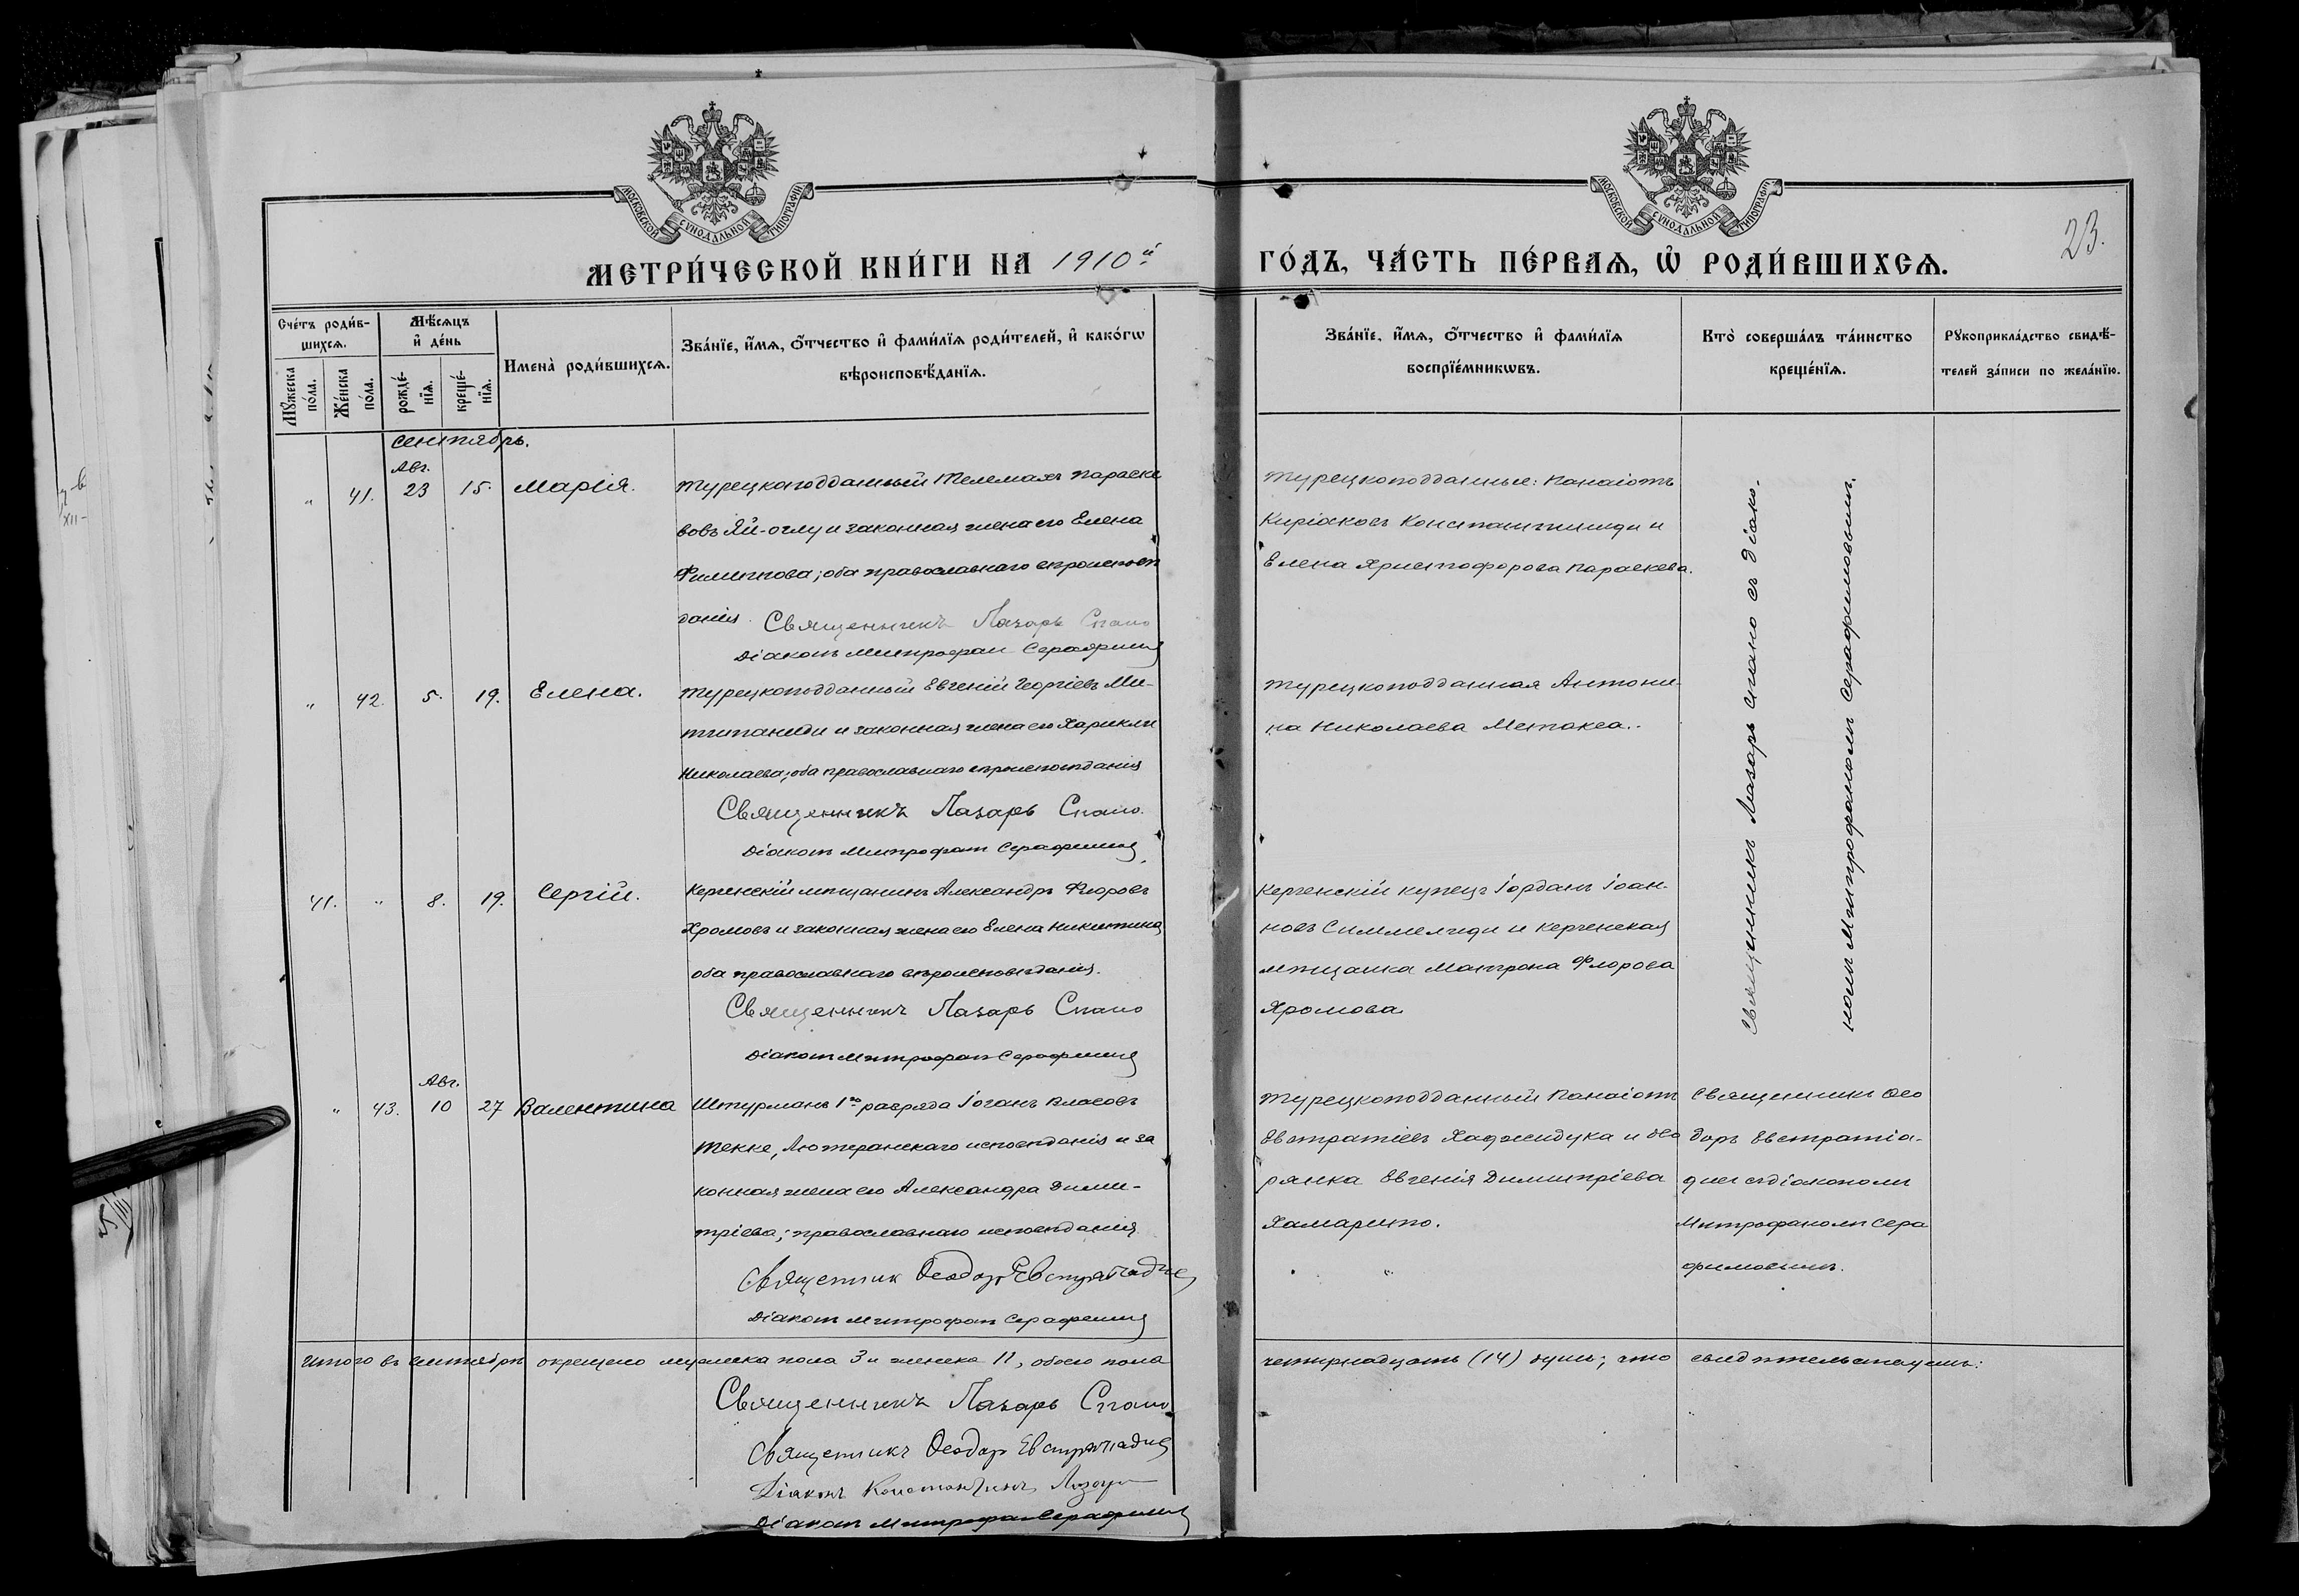 МОСКОВСКОЙ СѴНОДАЛЬНОЙ ТИПОГРАФІИ
МОСКОВСКОЙ СѴНОДАЛЬНОЙ ТИПОГРАФІИ
23.
МЕТРИ́ЧЕСКОЙ КНИ́ГИ НА 1910й
ГО́ДЪ, ЧА́СТЬ ПЕ́РВАѦ, Ѽ РОДИ́ВШИХСѦ.
Сче́тъ роди́в-
шихсѧ.
Мꙋ́жеска по́ла.
Же́нска по́ла.
Мѣ́сѧцъ
и҆ де́нь
рожде́-
нїѧ.
креще́-
нїѧ.
Имена̀ роди́вшихсѧ.
Зва́нїе, и҆́мѧ, ѻ҆́тчество и҆ фами́лїѧ роди́телей, и҆ како́гѡ
вѣроисповѣ́данїѧ.
Зва́нїе, и҆́мѧ, ѻ҆́тчество и҆ фами́лїѧ
воспрїе́мникѡвъ.
Кто̀ соверша́лъ та́инство
креще́нїѧ.
Рꙋкоприкла́дство свидѣ́-
телей за́писи по жела́нїю.
Сентябрь.
Авг.
" 41. 23 15. Марія.
Турецкоподданный Телемахъ Параске
вовъ Яй-оглу и законная жена его Елена
Филиппова; оба православнаго вѣроисповѣ
данія.
Священникъ Лазарь Спано
Діаконъ Митрофан Серафимов
Турецкоподданные: Панаіотъ
Киріаковъ Константиниди и
Елена Христофорова Параскева.
Священникъ Лазарь Спано съ діако-
номъ Митрофаномъ Серафимовымъ.
" 42. 5. 19. Елена.
Турецкоподданный Евгеній Георгіевъ Ми-
титаниди и законная жена его Харикли
Николаева; оба православнаго вѣроисповѣданія
Священникъ Лазарь Спано.
Діаконъ Митрофанъ Серафимов
Турецкоподданная Антони-
на Николаева Метакса.
41. " 8. 19. Сергій.
Керченскій мѣщанинъ Александръ Флоровъ
Хромовъ и законная жена его Елена Никитина
оба православнаго вѣроисповѣданія.
Священникъ Лазарь Спано
Діаконъ Митрофанъ Серафимов
Керченскій купецъ Іорданъ Іоан-
новъ Симмелиди и Керченская
мѣщанка Матрона Флорова
Хромова.
Авг.
" 43. 10 27 Валентина
Штурманъ 1го разряда Іоганъ Власовъ
Текке, Лютеранскаго исповѣданія и за
конная жена его Александра Дими-
тріева; православнаго исповѣданія
Священник Ѳеодор Евстратіадис
Діаконъ Митрофанъ Серафимов
Турецкоподданный Панаіотъ
Евстратіевъ Хаджидука и дво
рянка Евгенія Димитріева
Хамарито.
Священникъ Ѳео
доръ Евстратіа-
дис съ діакономъ
Митрофаномъ Сера
фимовымъ.
Итого въ Сентябрѣ окрещено мужеска пола 3 и женска 11, обоего пола
четырнадцать (14) душъ; что свидѣтельствуемъ:
Священникъ Лазарь Спано
Священникъ Ѳеодор Евстратіадис
Діаконъ Константинъ
Діаконъ Митрофан Серафимов